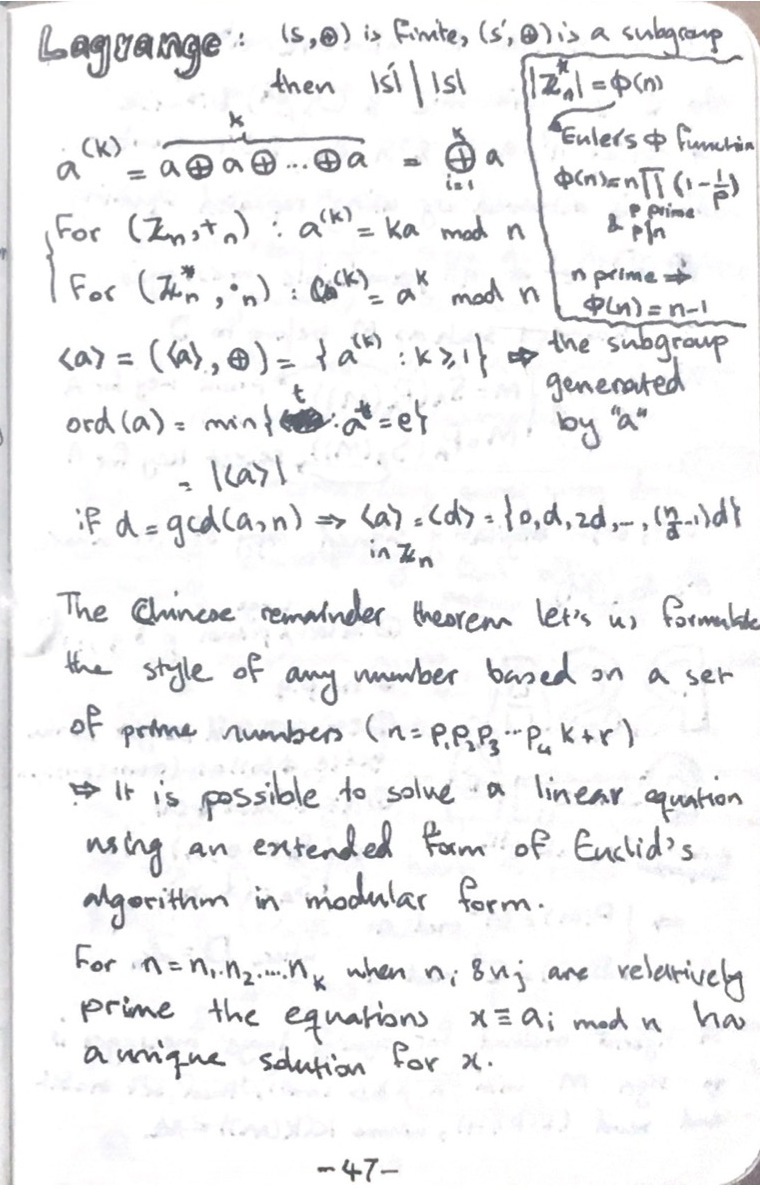 Lagrange: (S,⊕) is finite, (S',⊕) is a subgroup
then |S'| | |S|
|ℤ*ₙ| = Φ(n)
Euler's Φ function
Φ(n)=n∏(1-1/p)
p prime
& p|n
n prime ⇒
Φ(n)=n-1
k
a^(k) = a⊕a⊕...⊕a = ⊕_{i=1}^{k} a
For (ℤₙ,+ₙ) : a^(k) = ka mod n
For (ℤ*ₙ,·ₙ) : a^(k) = a^k mod n
<a> = (<a>,⊕) = {a^(k) : k≥1} ⇒ the subgroup
generated
by "a"
ord(a) = min{t : a^t = e}
= |<a>|
if d = gcd(a,n) ⇒ <a> = <d> = {0,d,2d,...,(n/d -1)d}
in ℤₙ
The Chinese remainder theorem let's us formulate
the style of any number based on a set
of prime numbers (n=P₁P₂P₃...P₄ k+r)
⇒ It is possible to solve a linear equation
using an extended form of Euclid's
algorithm in modular form.
For n=n₁.n₂.....nₖ when nᵢ & nⱼ are reletively
prime the equations x≡aᵢ mod n has
a unique solution for x.
-47-